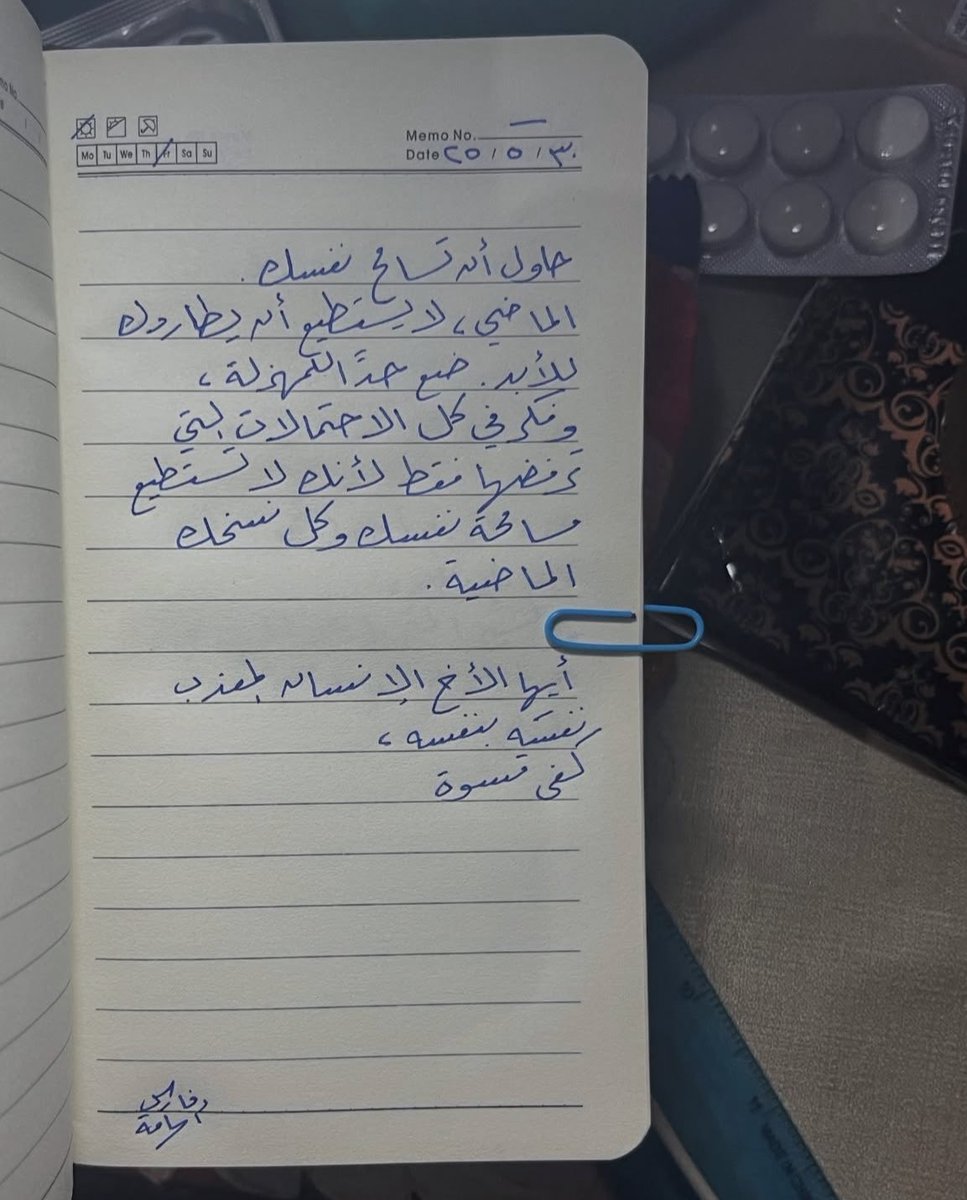 Memo No. —
Mo Tu We Th Fr Sa Su
Date ٢٥ / ٥ / ٣٠
حاول أن تسامح نفسك.
الماضي، لا يستطيع أن يطاردك
للأبد. ضع حدًا للمهزلة،
وفكر في كل الاحتمالات التي
ترفضها فقط لأنك لا تستطيع
مسامحة نفسك وكل نسخك
الماضية.
أيها الأخ الإنسان المعذب
نفسَه بنفسه،
كفى قسوة